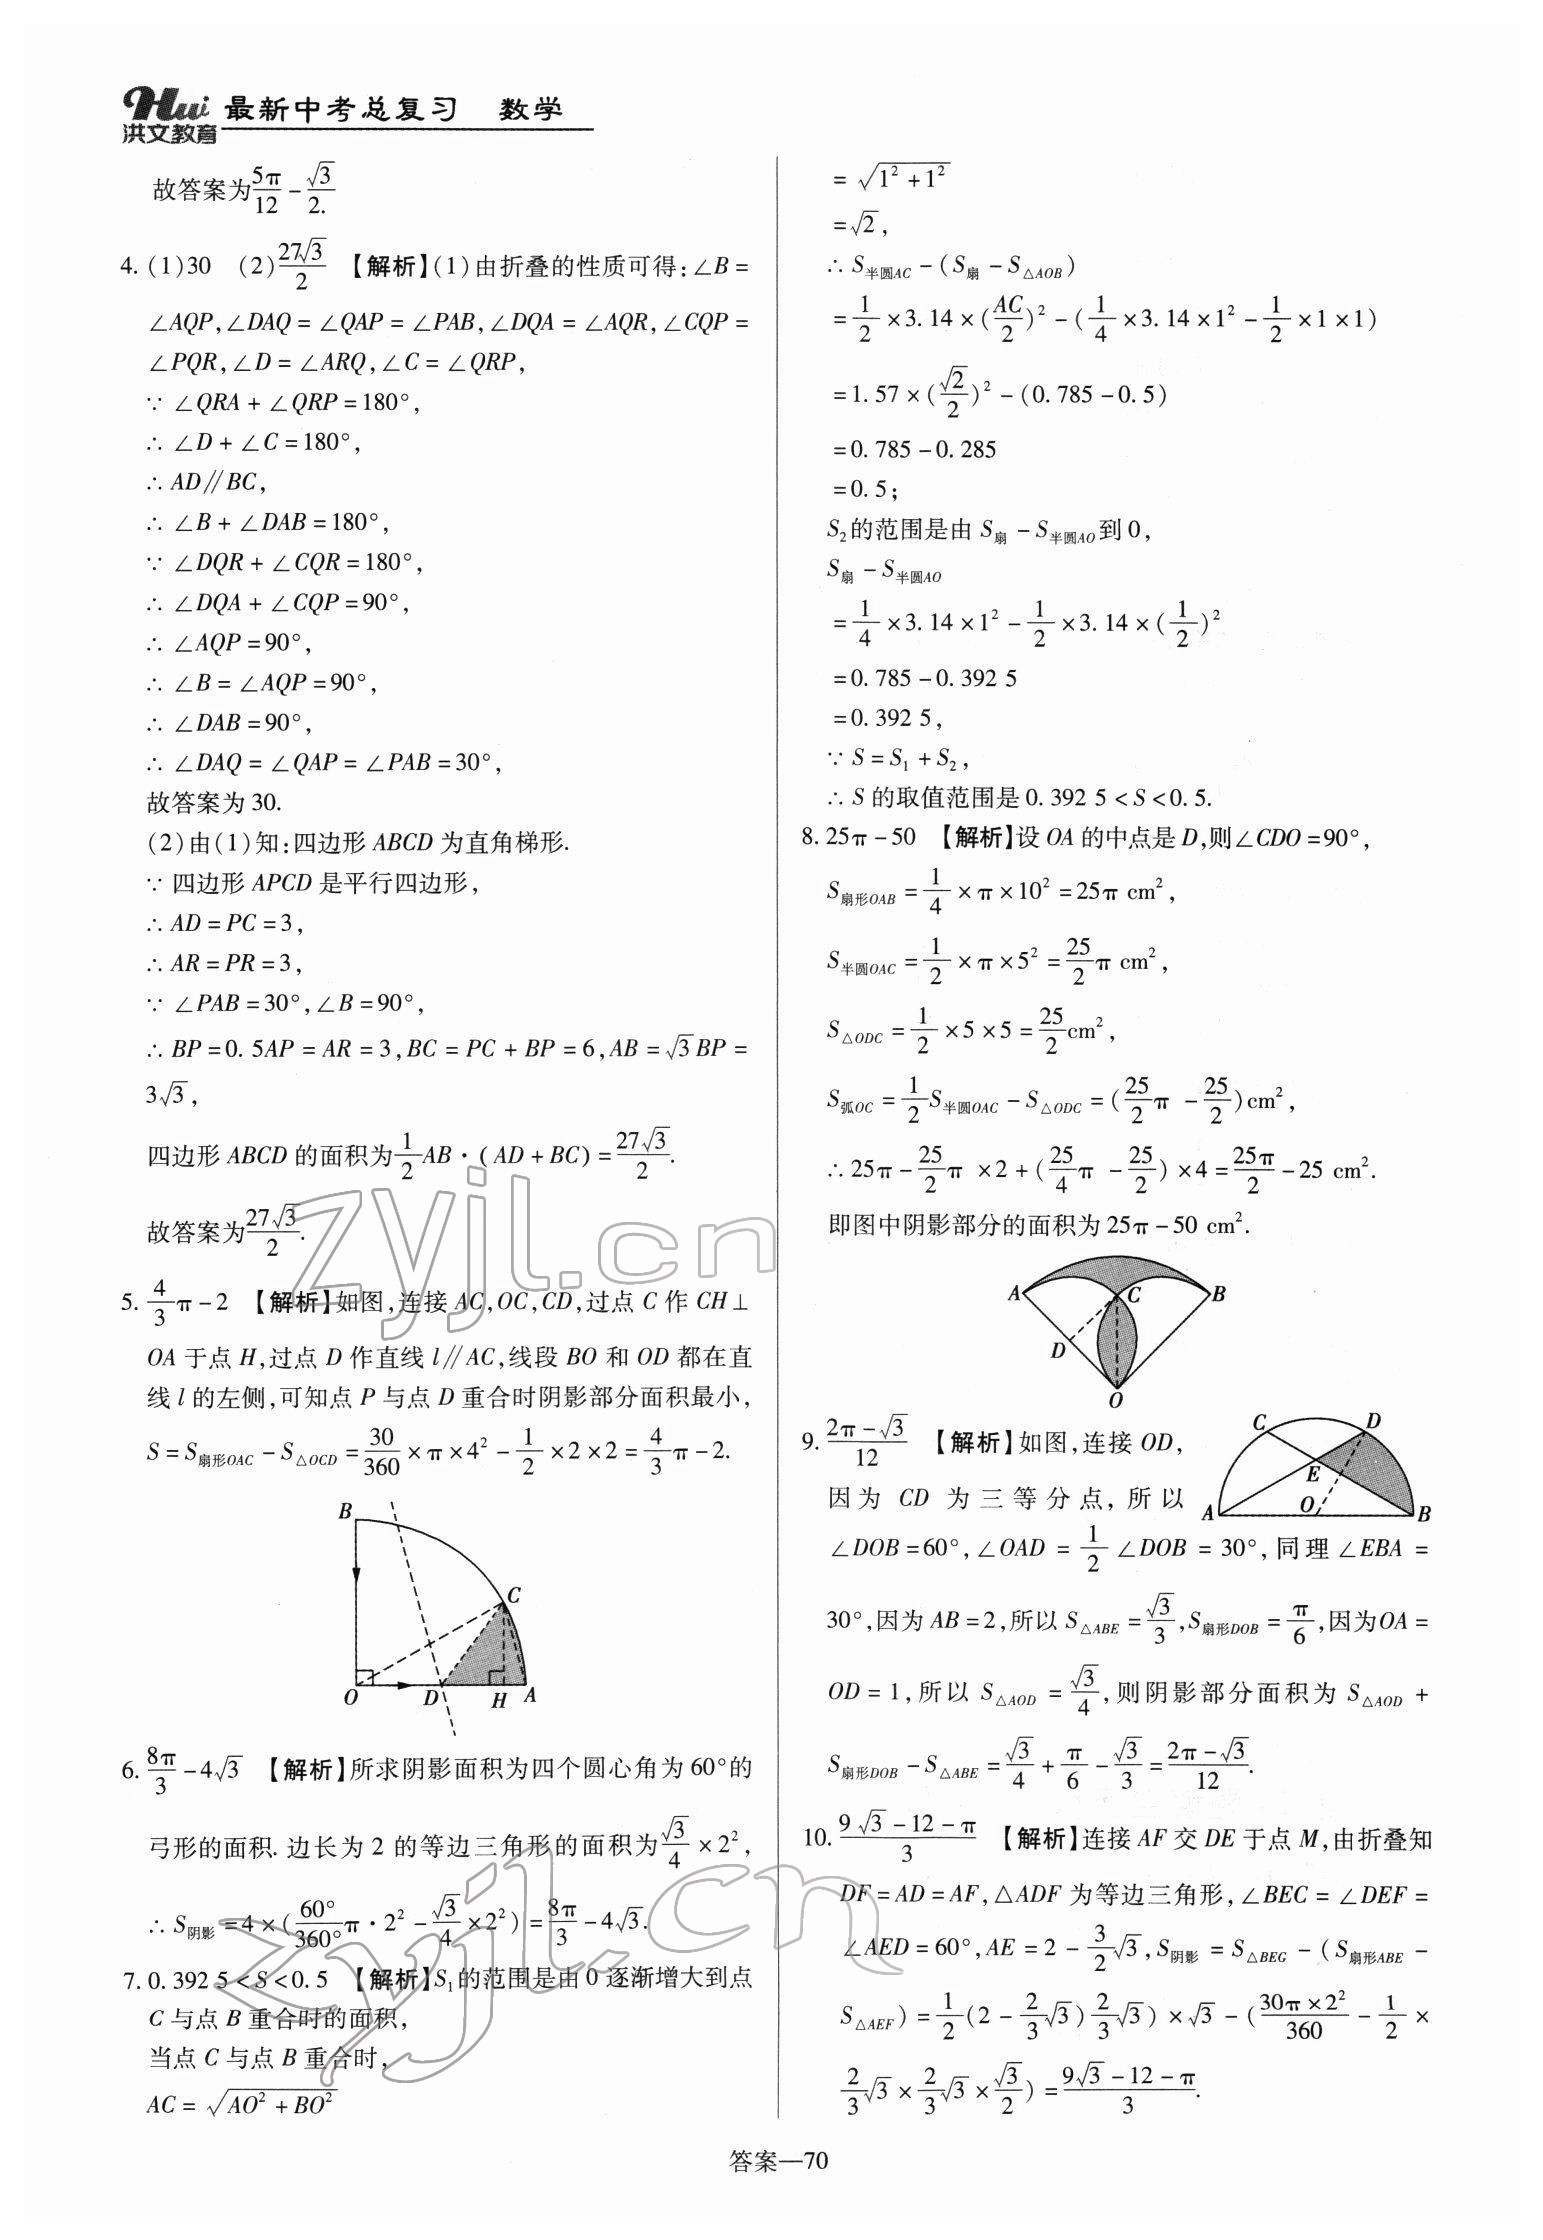 Hui 洪文教育 最新中考总复习 数学
故答案为5π/12 - √3/2.
4. (1)30 (2)27√3/2 【解析】(1)由折叠的性质可得:∠B =
∠AQP,∠DAQ = ∠QAP = ∠PAB,∠DQA = ∠AQR,∠CQP =
∠PQR,∠D = ∠ARQ,∠C = ∠QRP,
∵ ∠QRA + ∠QRP = 180°,
∴ ∠D + ∠C = 180°,
∴ AD∥BC,
∴ ∠B + ∠DAB = 180°,
∵ ∠DQR + ∠CQR = 180°,
∴ ∠DQA + ∠CQP = 90°,
∴ ∠AQP = 90°,
∴ ∠B = ∠AQP = 90°,
∴ ∠DAB = 90°,
∴ ∠DAQ = ∠QAP = ∠PAB = 30°,
故答案为 30.
(2)由(1)知:四边形 ABCD 为直角梯形.
∵ 四边形 APCD 是平行四边形,
∴ AD = PC = 3,
∴ AR = PR = 3,
∵ ∠PAB = 30°,∠B = 90°,
∴ BP = 0.5AP = AR = 3,BC = PC + BP = 6,AB = √3BP =
3√3,
四边形 ABCD 的面积为1/2AB·(AD + BC) = 27√3/2.
故答案为27√3/2.
5. 4/3π - 2 【解析】如图,连接 AC,OC,CD,过点 C 作 CH⊥
OA 于点 H,过点 D 作直线 l∥AC,线段 BO 和 OD 都在直
线 l 的左侧,可知点 P 与点 D 重合时阴影部分面积最小,
S = S扇形OAC - S△OCD = 30/360 × π × 4² - 1/2 × 2 × 2 = 4/3π - 2.
B
C
O D H A
6. 8π/3 - 4√3 【解析】所求阴影面积为四个圆心角为 60°的
弓形的面积. 边长为 2 的等边三角形的面积为√3/4 × 2²,
∴ S阴影 = 4 × (60°/360°π·2² - √3/4 × 2²) = 8π/3 - 4√3.
7. 0.392 5 < S < 0.5 【解析】S₁的范围是由 0 逐渐增大到点
C 与点 B 重合时的面积,
当点 C 与点 B 重合时,
AC = √(AO² + BO²)
= √(1² + 1²)
= √2,
∴ S半圆AC - (S扇 - S△AOB)
= 1/2 × 3.14 × (AC/2)² - (1/4 × 3.14 × 1² - 1/2 × 1 × 1)
= 1.57 × (√2/2)² - (0.785 - 0.5)
= 0.785 - 0.285
= 0.5;
S₂的范围是由 S扇 - S半圆AO到 0,
S扇 - S半圆AO
= 1/4 × 3.14 × 1² - 1/2 × 3.14 × (1/2)²
= 0.785 - 0.392 5
= 0.392 5,
∵ S = S₁ + S₂,
∴ S 的取值范围是 0.392 5 < S < 0.5.
8. 25π - 50 【解析】设 OA 的中点是 D,则∠CDO = 90°,
S扇形OAB = 1/4 × π × 10² = 25π cm²,
S半圆OAC = 1/2 × π × 5² = 25/2π cm²,
S△ODC = 1/2 × 5 × 5 = 25/2cm²,
S弧OC = 1/2S半圆OAC - S△ODC = (25/2π - 25/2)cm²,
∴ 25π - 25/2π × 2 + (25/4π - 25/2) × 4 = 25π/2 - 25 cm².
即图中阴影部分的面积为 25π - 50 cm².
A C B
D
O
9. (2π - √3)/12 【解析】如图,连接 OD,
因为 CD 为三等分点,所以
∠DOB = 60°,∠OAD = 1/2∠DOB = 30°,同理∠EBA =
30°,因为 AB = 2,所以 S△ABE = √3/3,S扇形DOB = π/6,因为OA =
OD = 1,所以 S△AOD = √3/4,则阴影部分面积为 S△AOD +
S扇形DOB - S△ABE = √3/4 + π/6 - √3/3 = (2π - √3)/12.
C D
E
A O B
10. (9√3 - 12 - π)/3 【解析】连接 AF 交 DE 于点 M,由折叠知
DF = AD = AF,△ADF 为等边三角形,∠BEC = ∠DEF =
∠AED = 60°,AE = 2 - 3/2√3,S阴影 = S△BEG - (S扇形ABE -
S△AEF) = 1/2(2 - 2/3√3)2/3√3) × √3 - (30π × 2²/360 - 1/2 ×
2/3√3 × 2/3√3 × √3/2) = (9√3 - 12 - π)/3.
zyjl.cn
zyjl.cn
答案—70